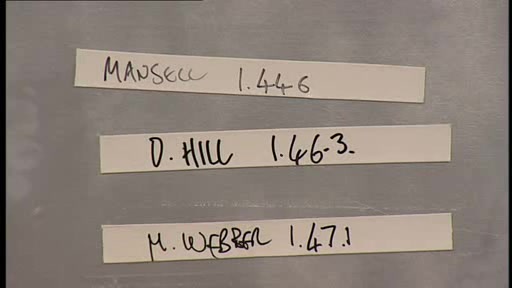 MANSELL 1.44.6
D. HILL 1.46.3
M. WEBBER 1.47.1